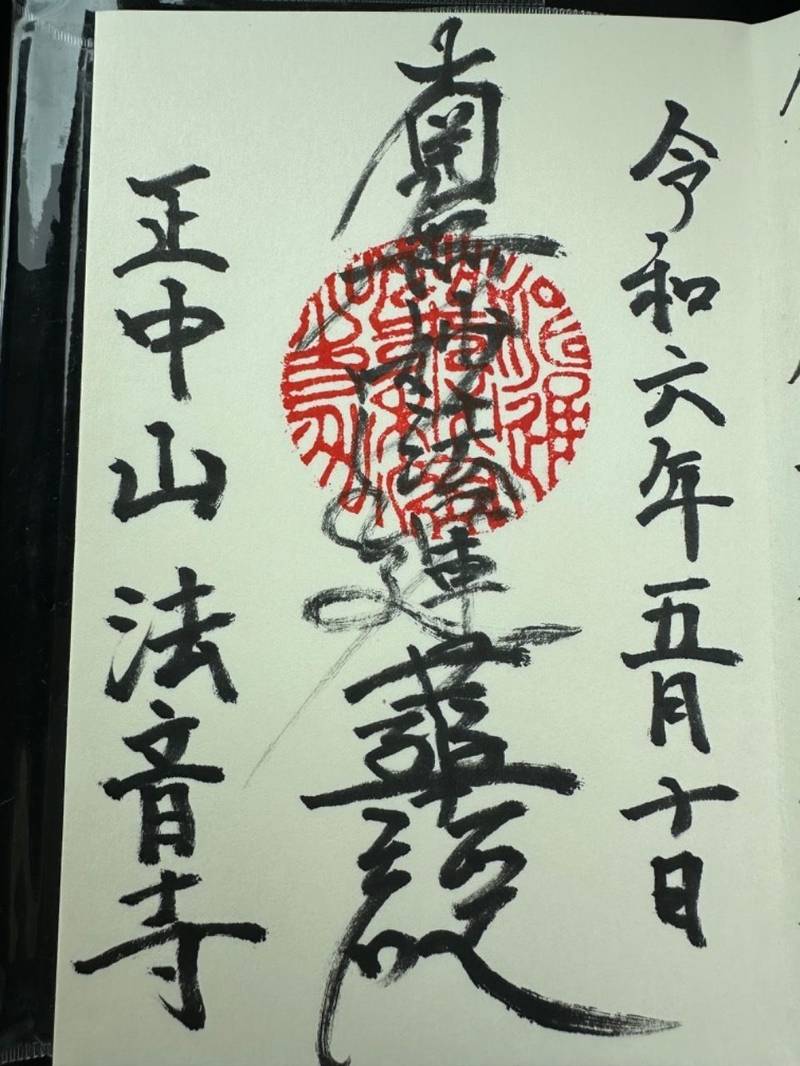 令和六年五月十日
南無妙法蓮華経
正中山 法音寺